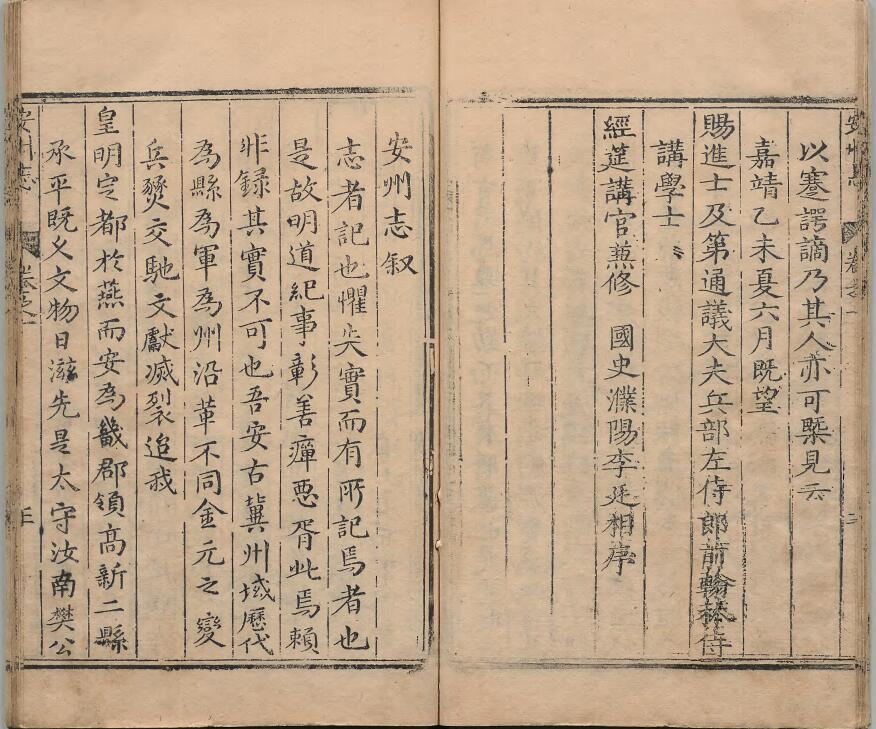 安州志
卷之一
二
以蹇諤謫乃其人亦可槩見云
嘉靖乙未夏六月既望
賜進士及第通議大夫兵部左侍郎前翰林侍
講學士
經筵講官兼修　國史濮陽李廷相序
安州志叙
志者記也懼失實而有所記焉者也
是故明道紀事彰善癉惡胥此焉賴
非録其實不可也吾安古冀州域歷代
為縣為軍為州沿革不同金元之變
兵燹交馳文獻滅裂迨我
皇明定都於燕而安為畿郡領高新二縣
承平既久文物日滋先是太守汝南樊公
安州志
卷之一